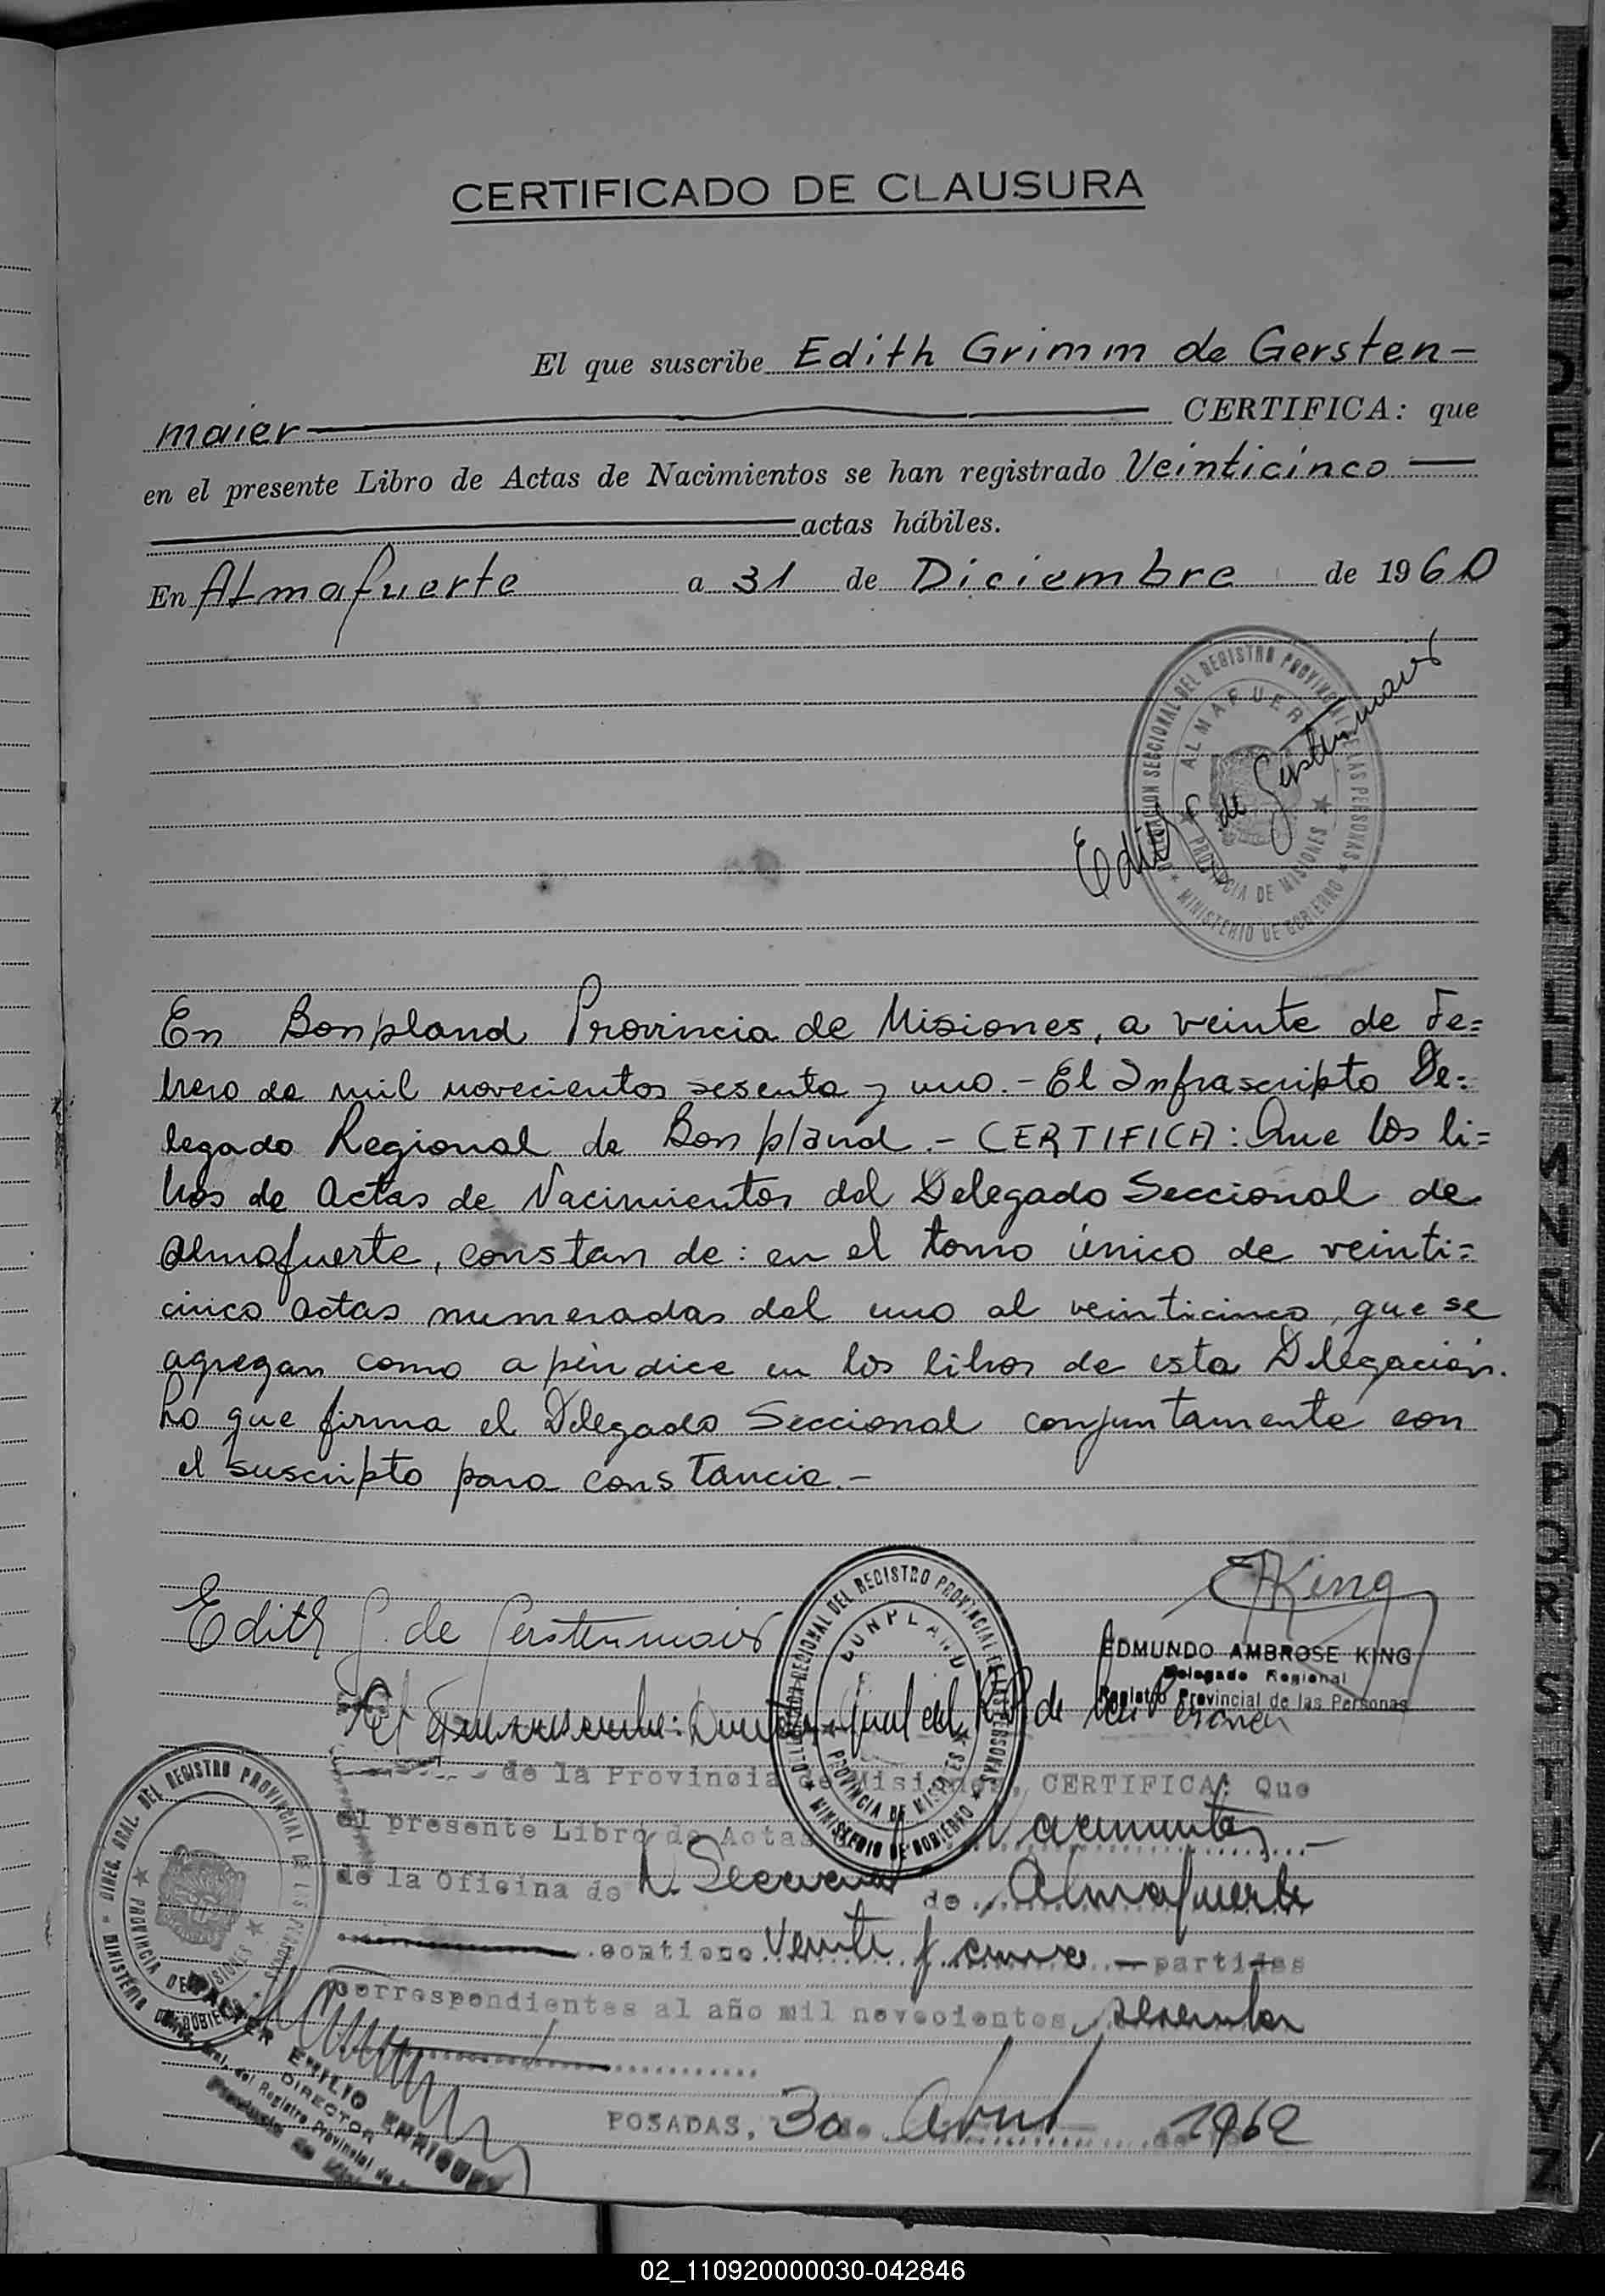 CERTIFICADO DE CLAUSURA
El que suscribe Edith Grimm de Gersten-
maier CERTIFICA: que
en el presente Libro de Actas de Nacimientos se han registrado Veinticinco
actas hábiles.
En Almafuerte a 31 de Diciembre de 1960
DELEGACION SECCIONAL DEL REGISTRO PROVINCIAL DE LAS PERSONAS
ALMAFUERTE
PROVINCIA DE MISIONES
MINISTERIO DE GOBIERNO
Edith G. de Gerstenmaier
En Bonpland Provincia de Misiones, a veinte de Fe=
brero de mil novecientos sesenta y uno.- El Infrascripto De=
legado Regional de Bonpland.- CERTIFICA: Que los li=
bros de Actas de Nacimientos del Delegado Seccional de
Almafuerte, constan de: en el tomo único de veinti=
cinco actas numeradas del uno al veinticinco, que se
agregan como apéndice en los libros de esta Delegación.
Lo que firma el Delegado Seccional conjuntamente con
el suscripto para constancia.-
Edith G. de Gerstenmaier
EKing
EDMUNDO AMBROSE KING
Delegado Regional
Registro Provincial de las Personas
DELEGACION REGIONAL DEL REGISTRO PROVINCIAL DE LAS PERSONAS
BONPLAND
PROVINCIA DE MISIONES
MINISTERIO DE GOBIERNO
El que suscribe: Director Gral del R.P. de las Personas
de la Provincia de Misiones, CERTIFICA: Que
el presente Libro de Actas de Nacimientos
de la Oficina de D. Seccional de Almafuerte
contiene veinte y cinco - partidas
correspondientes al año mil novecientos sesenta
POSADAS, 30 de Abril de 1962
DIREC. GRAL. DEL REGISTRO PROVINCIAL DE LAS PERSONAS
PROVINCIA DE MISIONES
MINISTERIO DE GOBIERNO
EMILIO
DIRECTOR
Gral. del Registro Provincial de
Provincia de
A
B
C
D
E
F
G
H
I
J
K
L
L
M
N
Ñ
O
P
Q
R
S
T
U
V
W
X
Y
Z
02_110920000030-042846